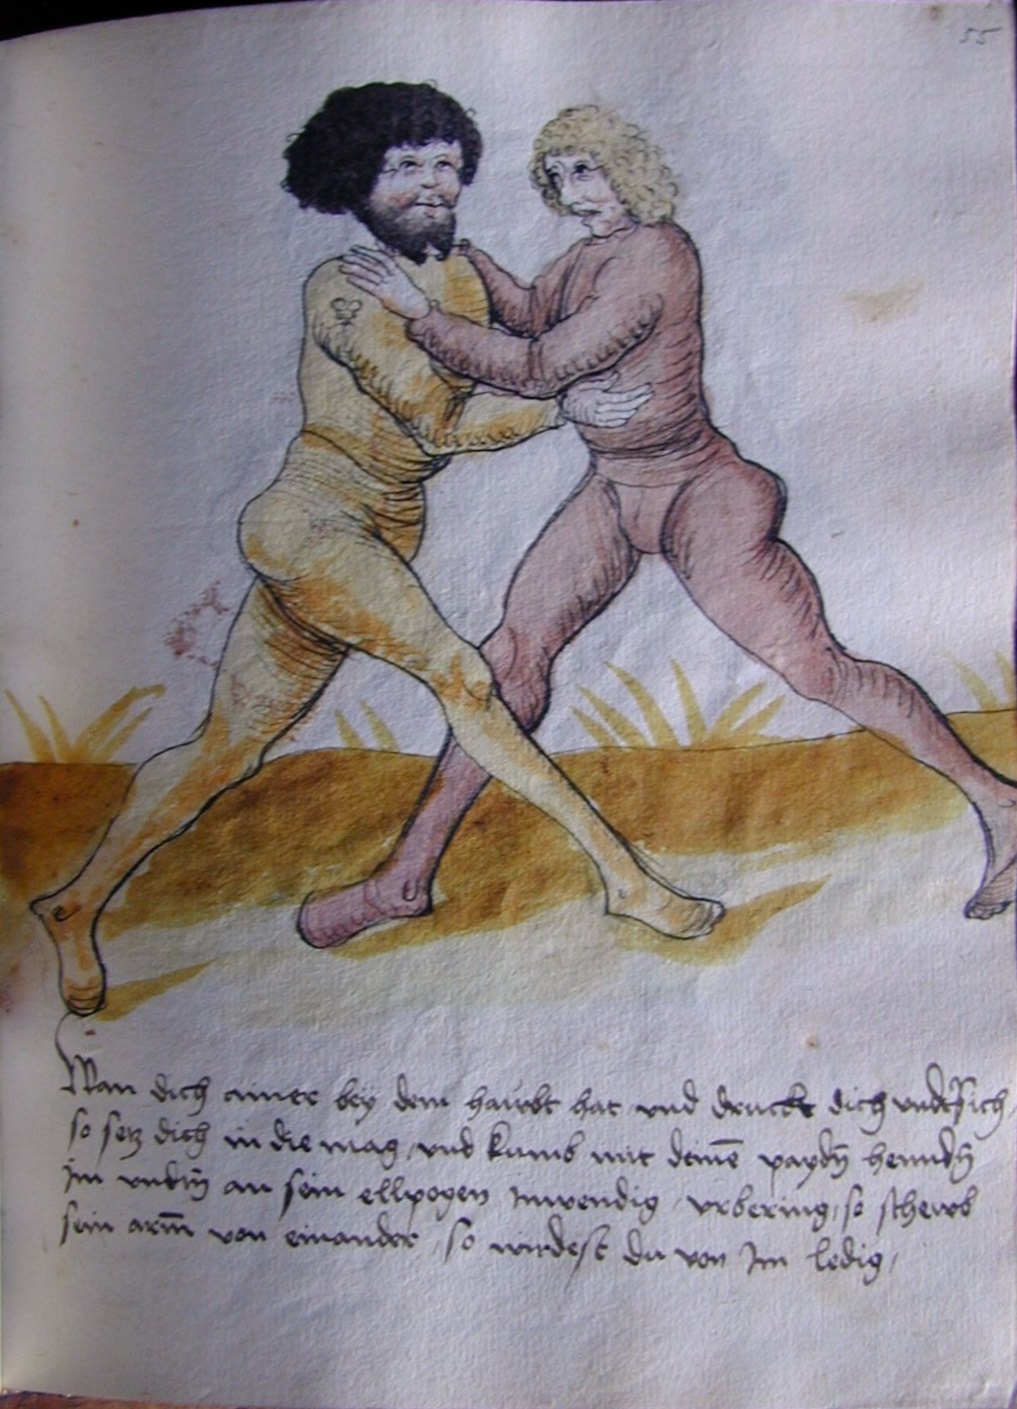 55
Wan dich ainer bey dem hawbt hat vnd druckt dich vndersich,
so setz dich in die wag, vnd kumb mit deinē paydn̄ henndn̄
Im vndn̄ an sein ellpogen Inwendig, vrbering, so schewb
sein arm̄ von einander, so wirdest du von Im ledig,